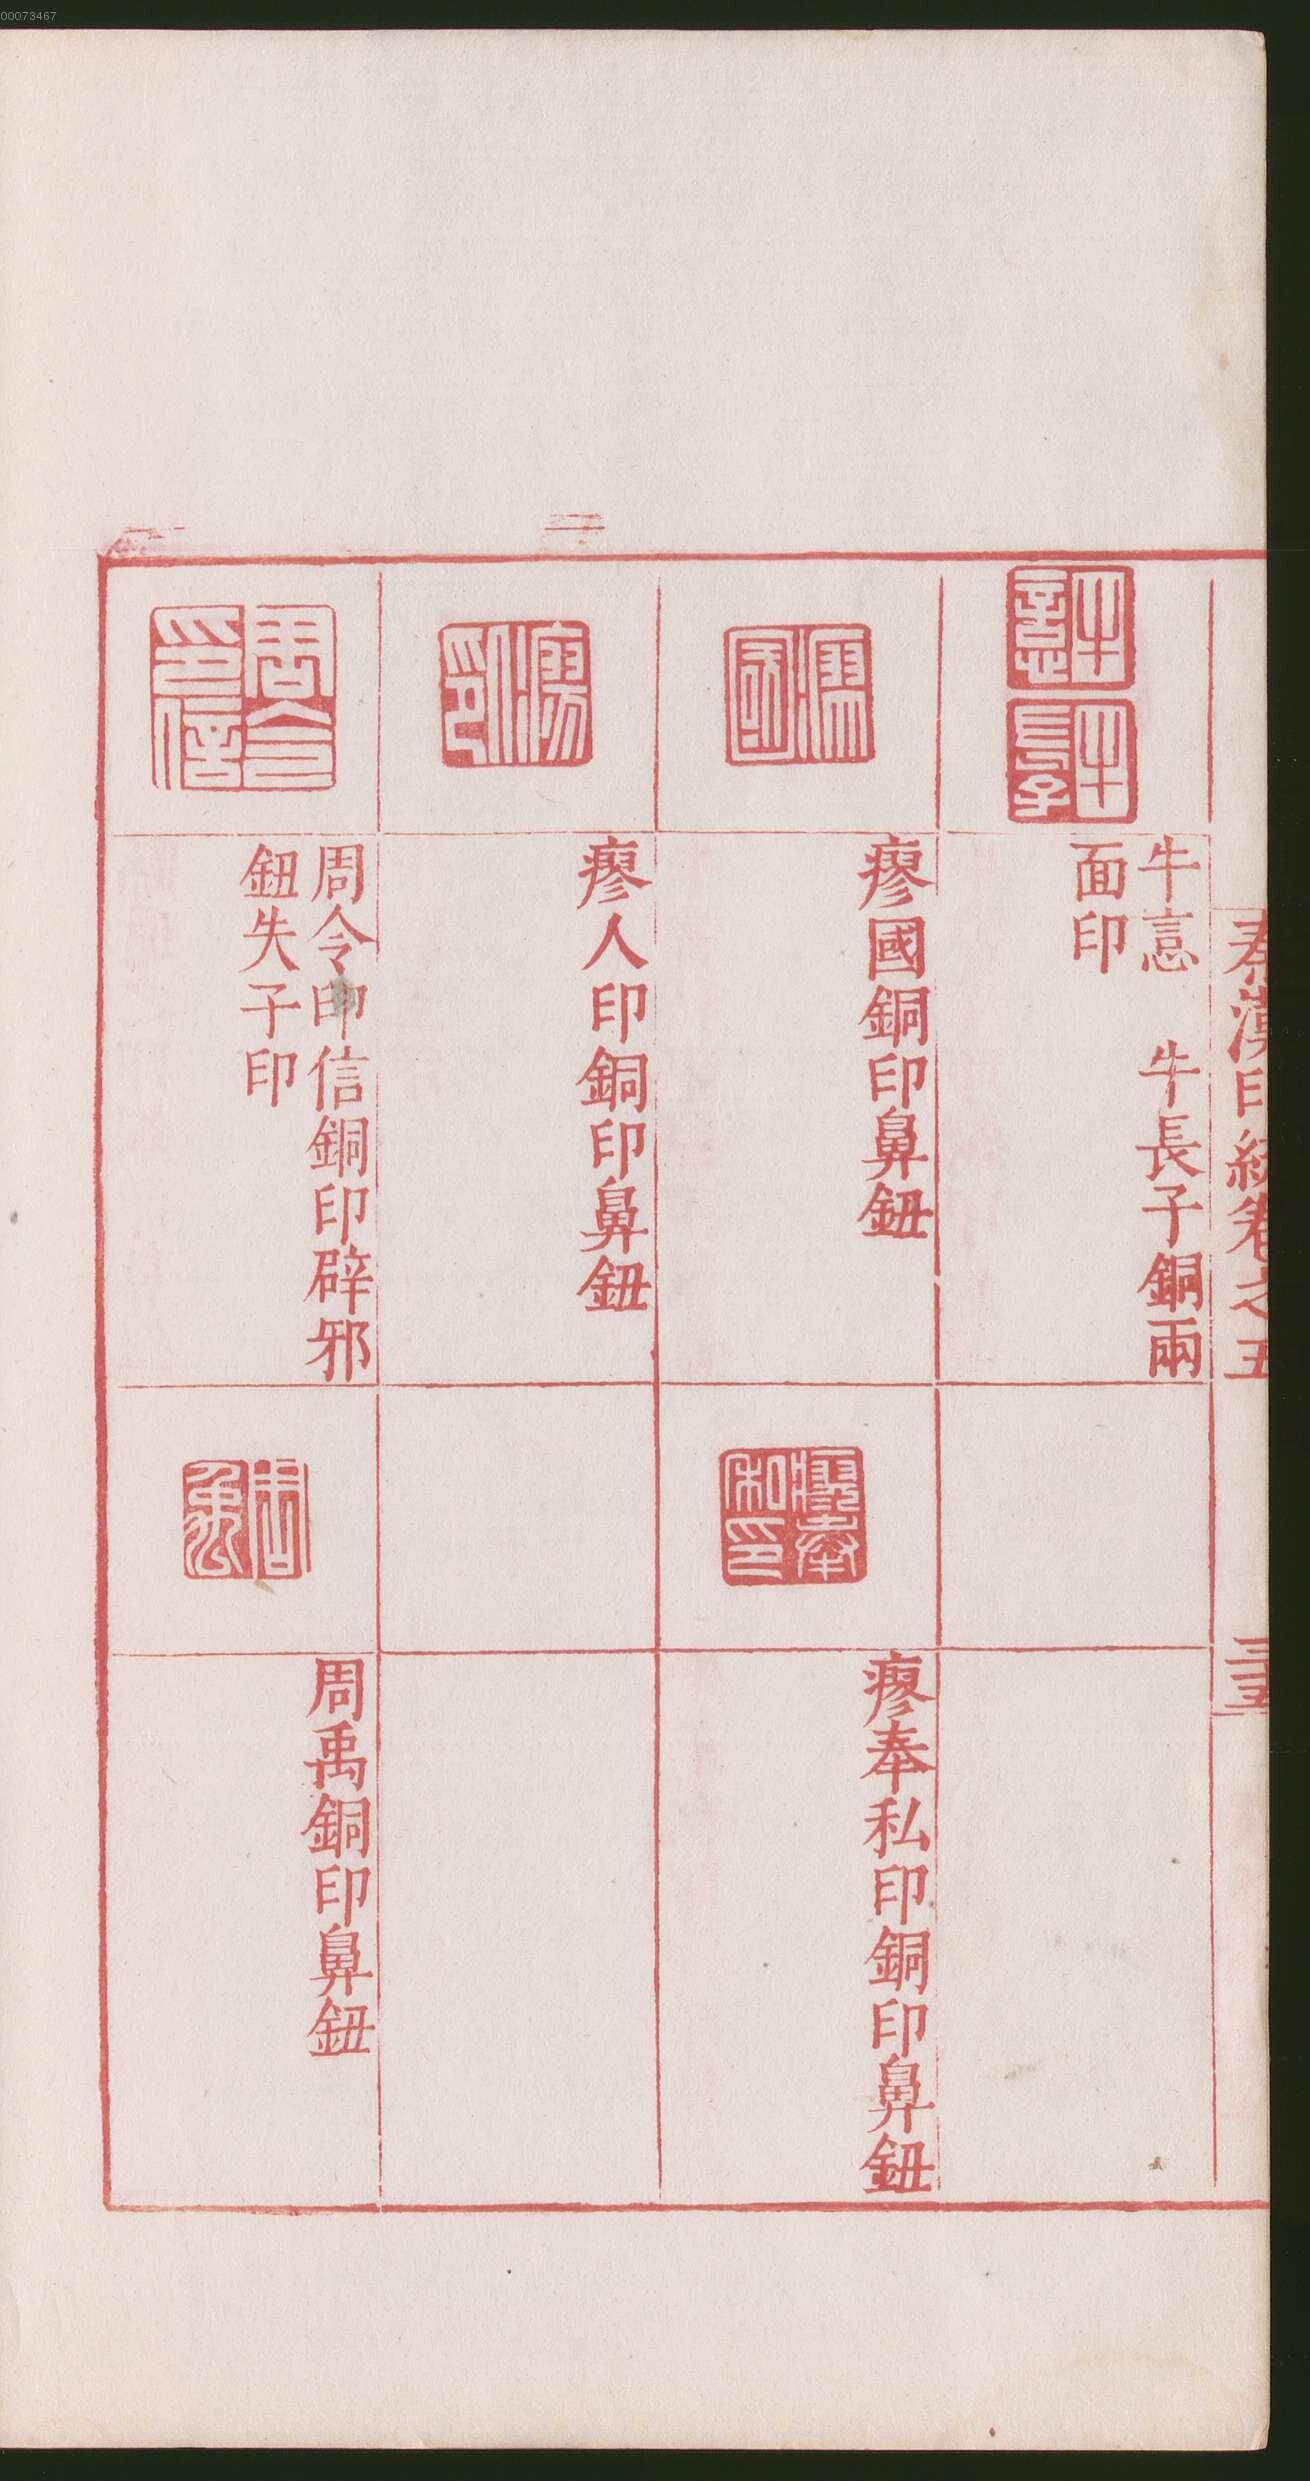 00073467
秦漢印統卷之五
三五
牛意 牛長子銅兩
面印
瘳國銅印鼻鈕
瘳奉私印銅印鼻鈕
瘳人印銅印鼻鈕
周令印信銅印辟邪
鈕失子印
周禹銅印鼻鈕